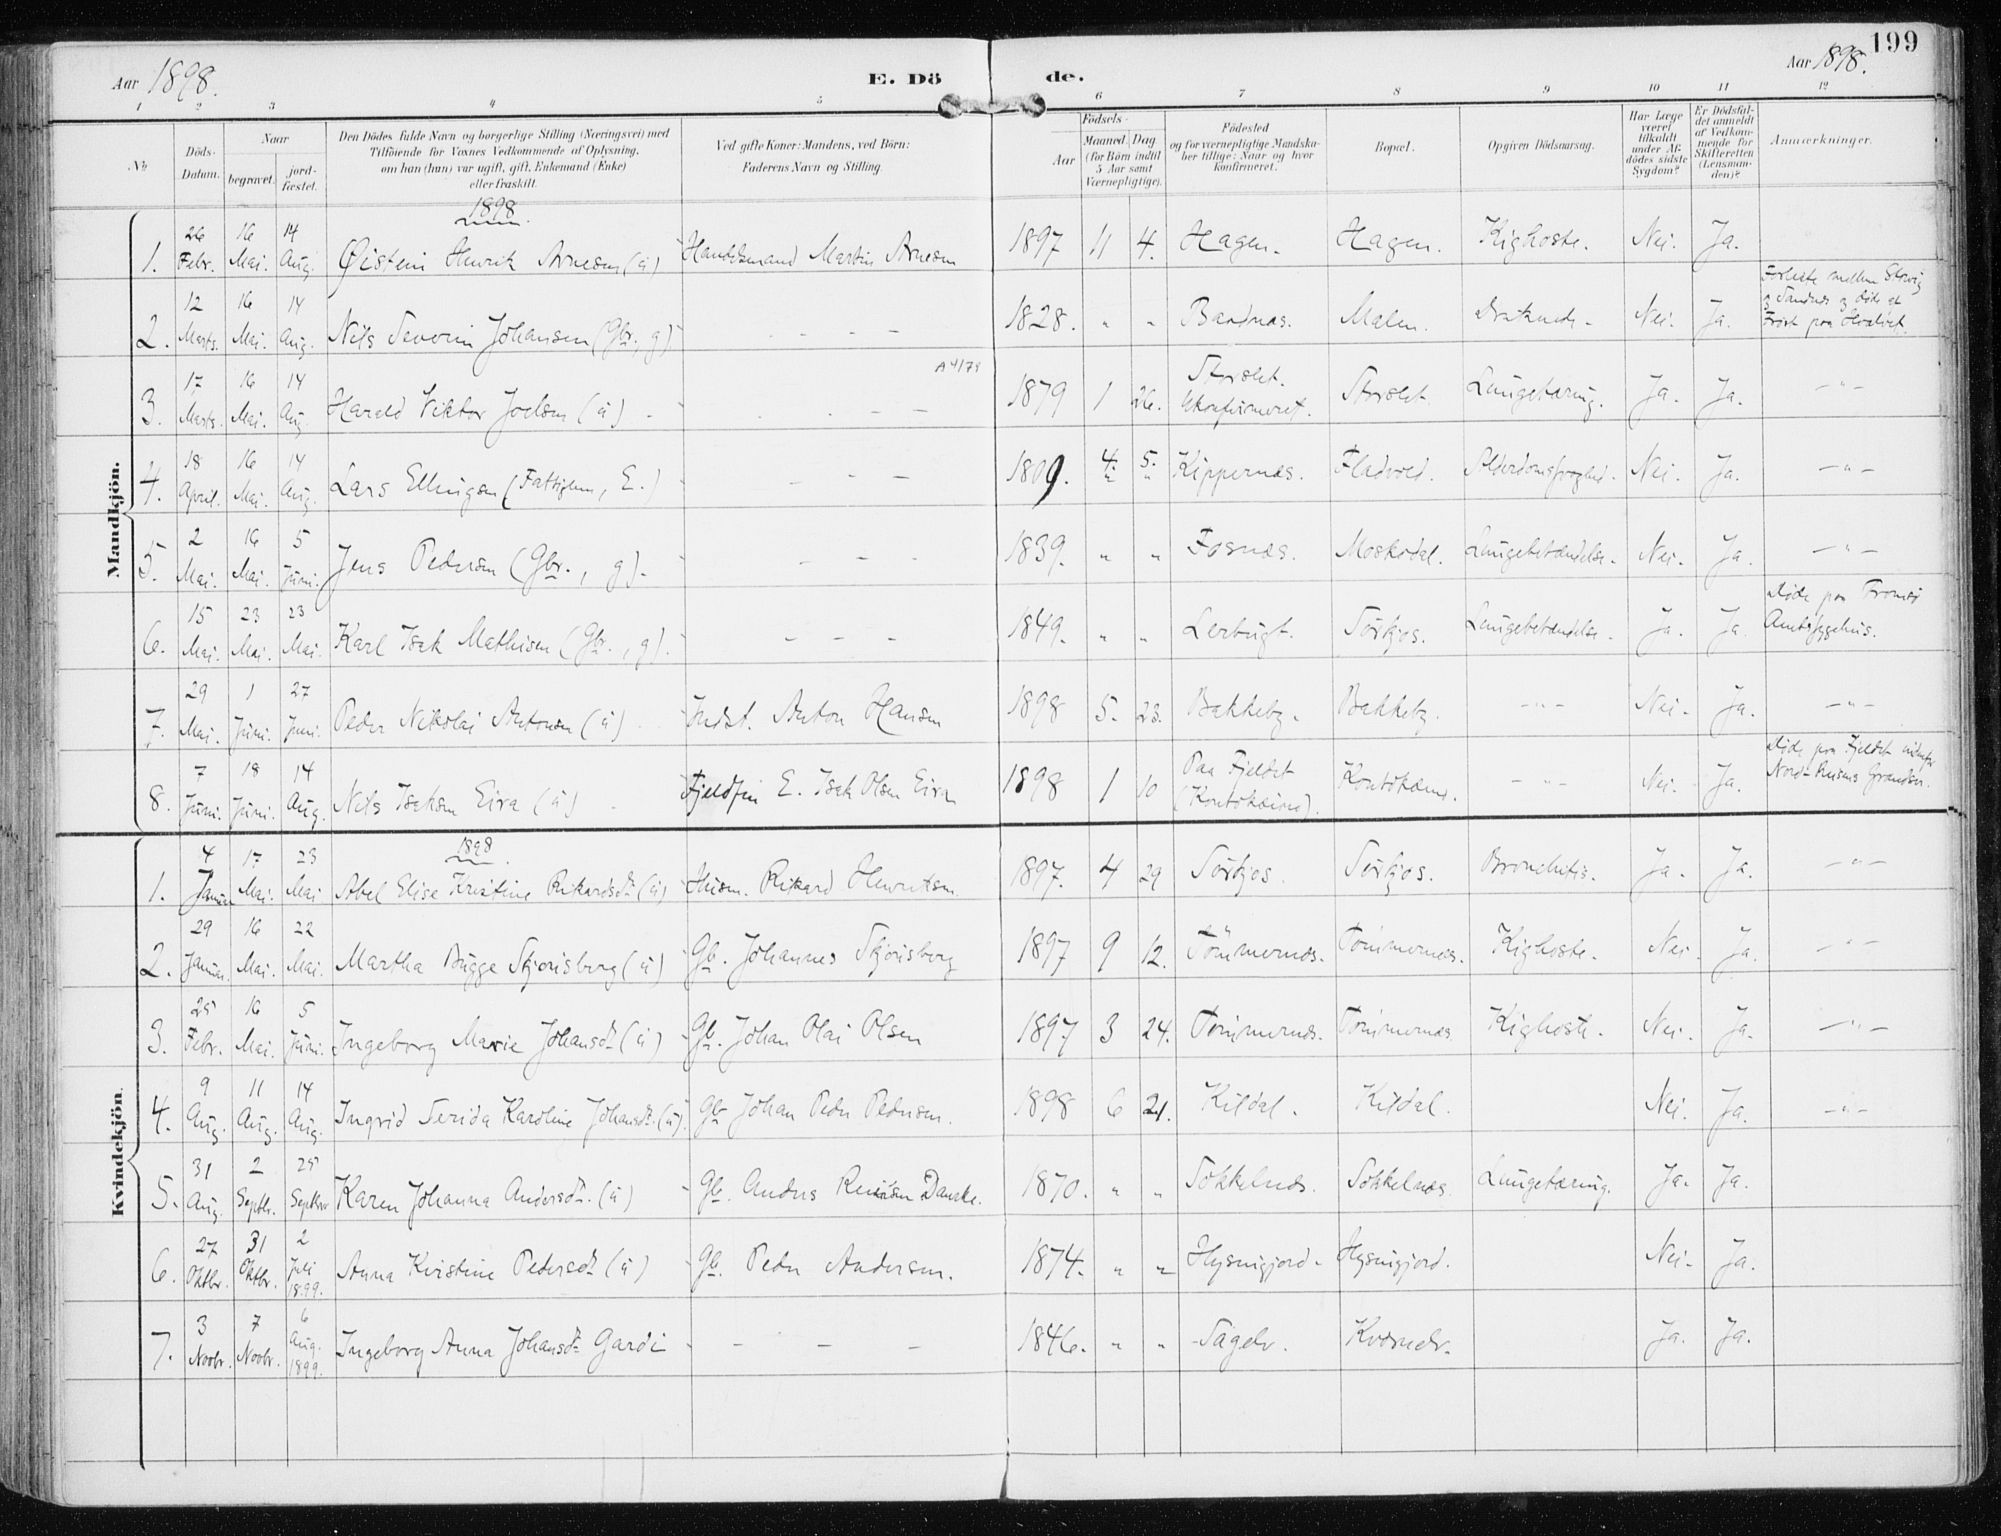 199
Aar 1898.
E. Dö de.
Aar 1898.
1 2 3 4 5 6 7 8 9 10 11 12
No
Döds-Datum.
Naar
begravet.
jord-fæstet.
Den Dödes fulde Navn og borgerlige Stilling (Næringsvei) med
Tilföiende for Voxnes Vedkommende af Oplysning,
om han (hun) var ugift, gift, Enkemand (Enke)
eller fraskilt.
Ved gifte Koner: Mandens, ved Börn:
Faderens Navn og Stilling.
Födsels-
Aar
Maaned. Dag
(for Börn indtil
5 Aar samt
Værnepligtige).
Födested
og for værnepligtige Mandska-
ber tillige: Naar og hvor
konfirmeret.
Bopæl.
Opgiven Dödsaarsag.
Har Læge
været
tilkaldt
under Af-
dödes sidste
Sygdom?
Er Dödsfal-
det anmeldt
af Vedkom-
mende for
Skifteretten
(Lensman-
den)?
Anmærkninger.
Mandkjön.
1898.
1. 26 Febr. 16 Mai. 14 Aug. Øistein Henrik Arnesen (ü) Handelsmand Martin Arnesen 1897 11 4. Hagen. Hagen. Kighoste. Nei. Ja.
2. 12 Marts. 16 Mai. 14 Aug. Nils Severin Johansen (Gbr., g) - - - 1828. " " Bardnæs. Malen. Druknede. Nei. Ja. Forliste mellem Storvig og Sandnes og døde af Frost paa Hvalvet.
A 4/79
3. 17 Marts. 16 Mai. 14 Aug. Harald Viktor Joelsen (ü) - - - 1879 1 26. Storslet. Ukonfirmeret. Storslet. Lungetæring. Ja. Ja. - " -
4. 18 April. 16 Mai. 14 Aug. Lars Ellingsen (Fattiglem, E.) - - - 1809. 4. 5. Kippernæs. Fladvold. Alderdomssvaghed. Nei. Ja. - " -
5. 2 Mai. 16 Mai. 5 Juni. Jens Pedersen (Gbr., g). - - 1839. " " Fosnæs. Moskodal. Lungebetændelse. Nei. Ja. - " -
6. 15 Mai. 23 Mai. 23 Mai. Karl Isak Mathisen (Gbr., g). - - - 1849. " " Lerbugt. Sørkjos. Lungebetændelse. Ja. Ja. Døde paa Tromsø Amtssygehus.
7. 29 Mai. 1 Juni. 27 Juni. Peder Nikolai Antonsen (ü) Indst. Anton Hansen 1898 5. 23. Bakkeby. Bakkeby. - " - Nei. Ja. - " -
8. 7 Juni. 18 Juni. 14 Aug. Nils Isaksen Eira (ü) Fjeldfin E. Isak Olsen Eira 1898 1 10 Paa Fjeldet (Koutokeino). Koutokeino. - " - Nei. Ja. Døde paa Fjeldet
Kvindekjön.
1898.
1. 4 Januar 17 Mai. 23 Mai Abel Elise Kristine Rikardsdtr (ü) Husm. Rikard Henriksen 1897. 4 29 Sørkjos. Sørkjos. Bronchitis. Ja. Ja. - " -
2. 29 Januar. 16 Mai. 22 Mai. Martha Bugge Skjørisberg (ü) Gb. Johannes Skjørisberg 1897 9 12. Tømmernæs. Tømmernæs. Kighoste. Nei. Ja. - " -
3. 25 Febr. 16 Mai. 5 Juni. Ingeborg Marie Johansdtr (ü) Gb. Johan Olai Olsen 1897 3 24. Tømmernæs. Tømmernæs. Kighoste. Nei. Ja. - " -
4. 9 Aug. 11 Aug. 14 Aug. Ingrid Serida Karoline Johansdtr. (ü). Gb. Johan Peder Pedersen. 1898 6 21. Kildal. Kildal. Nei. Ja. - " -
5. 31 Aug. 2 Septbr. 25 Septbr Karen Johanna Andersdtr. (ü) Gb. Anders Danske. 1870. " " Sokkelnæs. Sokkelnæs. Lungetæring. Ja. Ja.
6. 27 Oktbr. 31 Oktbr. 2 Juli 1899. Anna Kristine Pedersdtr (ü) Gb. Peder Andersen. 1874. " " Hysingjord. Hysingjord. Nei. Ja.
7. 3 Novbr. 7 Novbr. 6 Aug. 1899. Ingeborg Anna Johansdtr Gardi - - - 1846. " " Sagelv. Kvænelv. Ja. Ja.